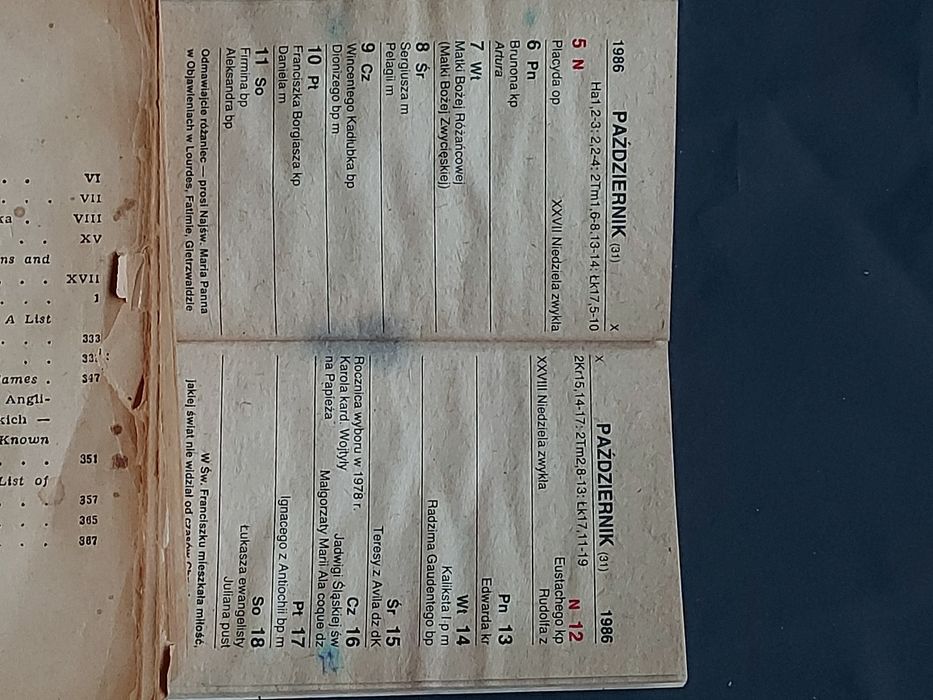 1986 PAŹDZIERNIK (31) X
Ha1,2-3: 2,2-4: 2Tm1,6-8.13-14: Łk17,5-10
5 N
XXVII Niedziela zwykła
Placyda op
6 Pn
Brunona kp
Artura
7 Wt
Matki Bożej Różańcowej
(Matki Bożej Zwycięskiej)
8 Śr
Sergiusza m
Pelagii m
9 Cz
Wincentego Kadłubka bp
Dionizego bp m
10 Pt
Franciszka Borgiasza kp
Daniela m
11 So
Firmina bp
Aleksandra bp
Odmawiajcie różaniec — prosi Najśw. Maria Panna
w Objawieniach w Lourdes, Fatimie, Gietrzwałdzie
X PAŹDZIERNIK (31) 1986
2Kr15,14-17: 2Tm2,8-13: Łk17,11-19
N 12
XXVIII Niedziela zwykła
Eustachego kp
Rudolfa z
Pn 13
Edwarda kr
Wt 14
Kaliksta I p m
Radzima Gaudentego bp
Śr 15
Teresy z Avila dz dK
Cz 16
Rocznica wyboru w 1978 r.
Karola kard. Wojtyły
na Papieża
Jadwigi Śląskiej św
Małgorzaty Marii Ala coque dz
Pt 17
Ignacego z Antiochii bp m
So 18
Łukasza ewangelisty
Juliana pust
W Św. Franciszku mieszkała miłość,
jakiej świat nie widział od czasów
VI
VII
VIII
XV
ns and
XVII
1
A List
333
ames . 347
Angli-
kich —
Known
351
List of
357
365
367